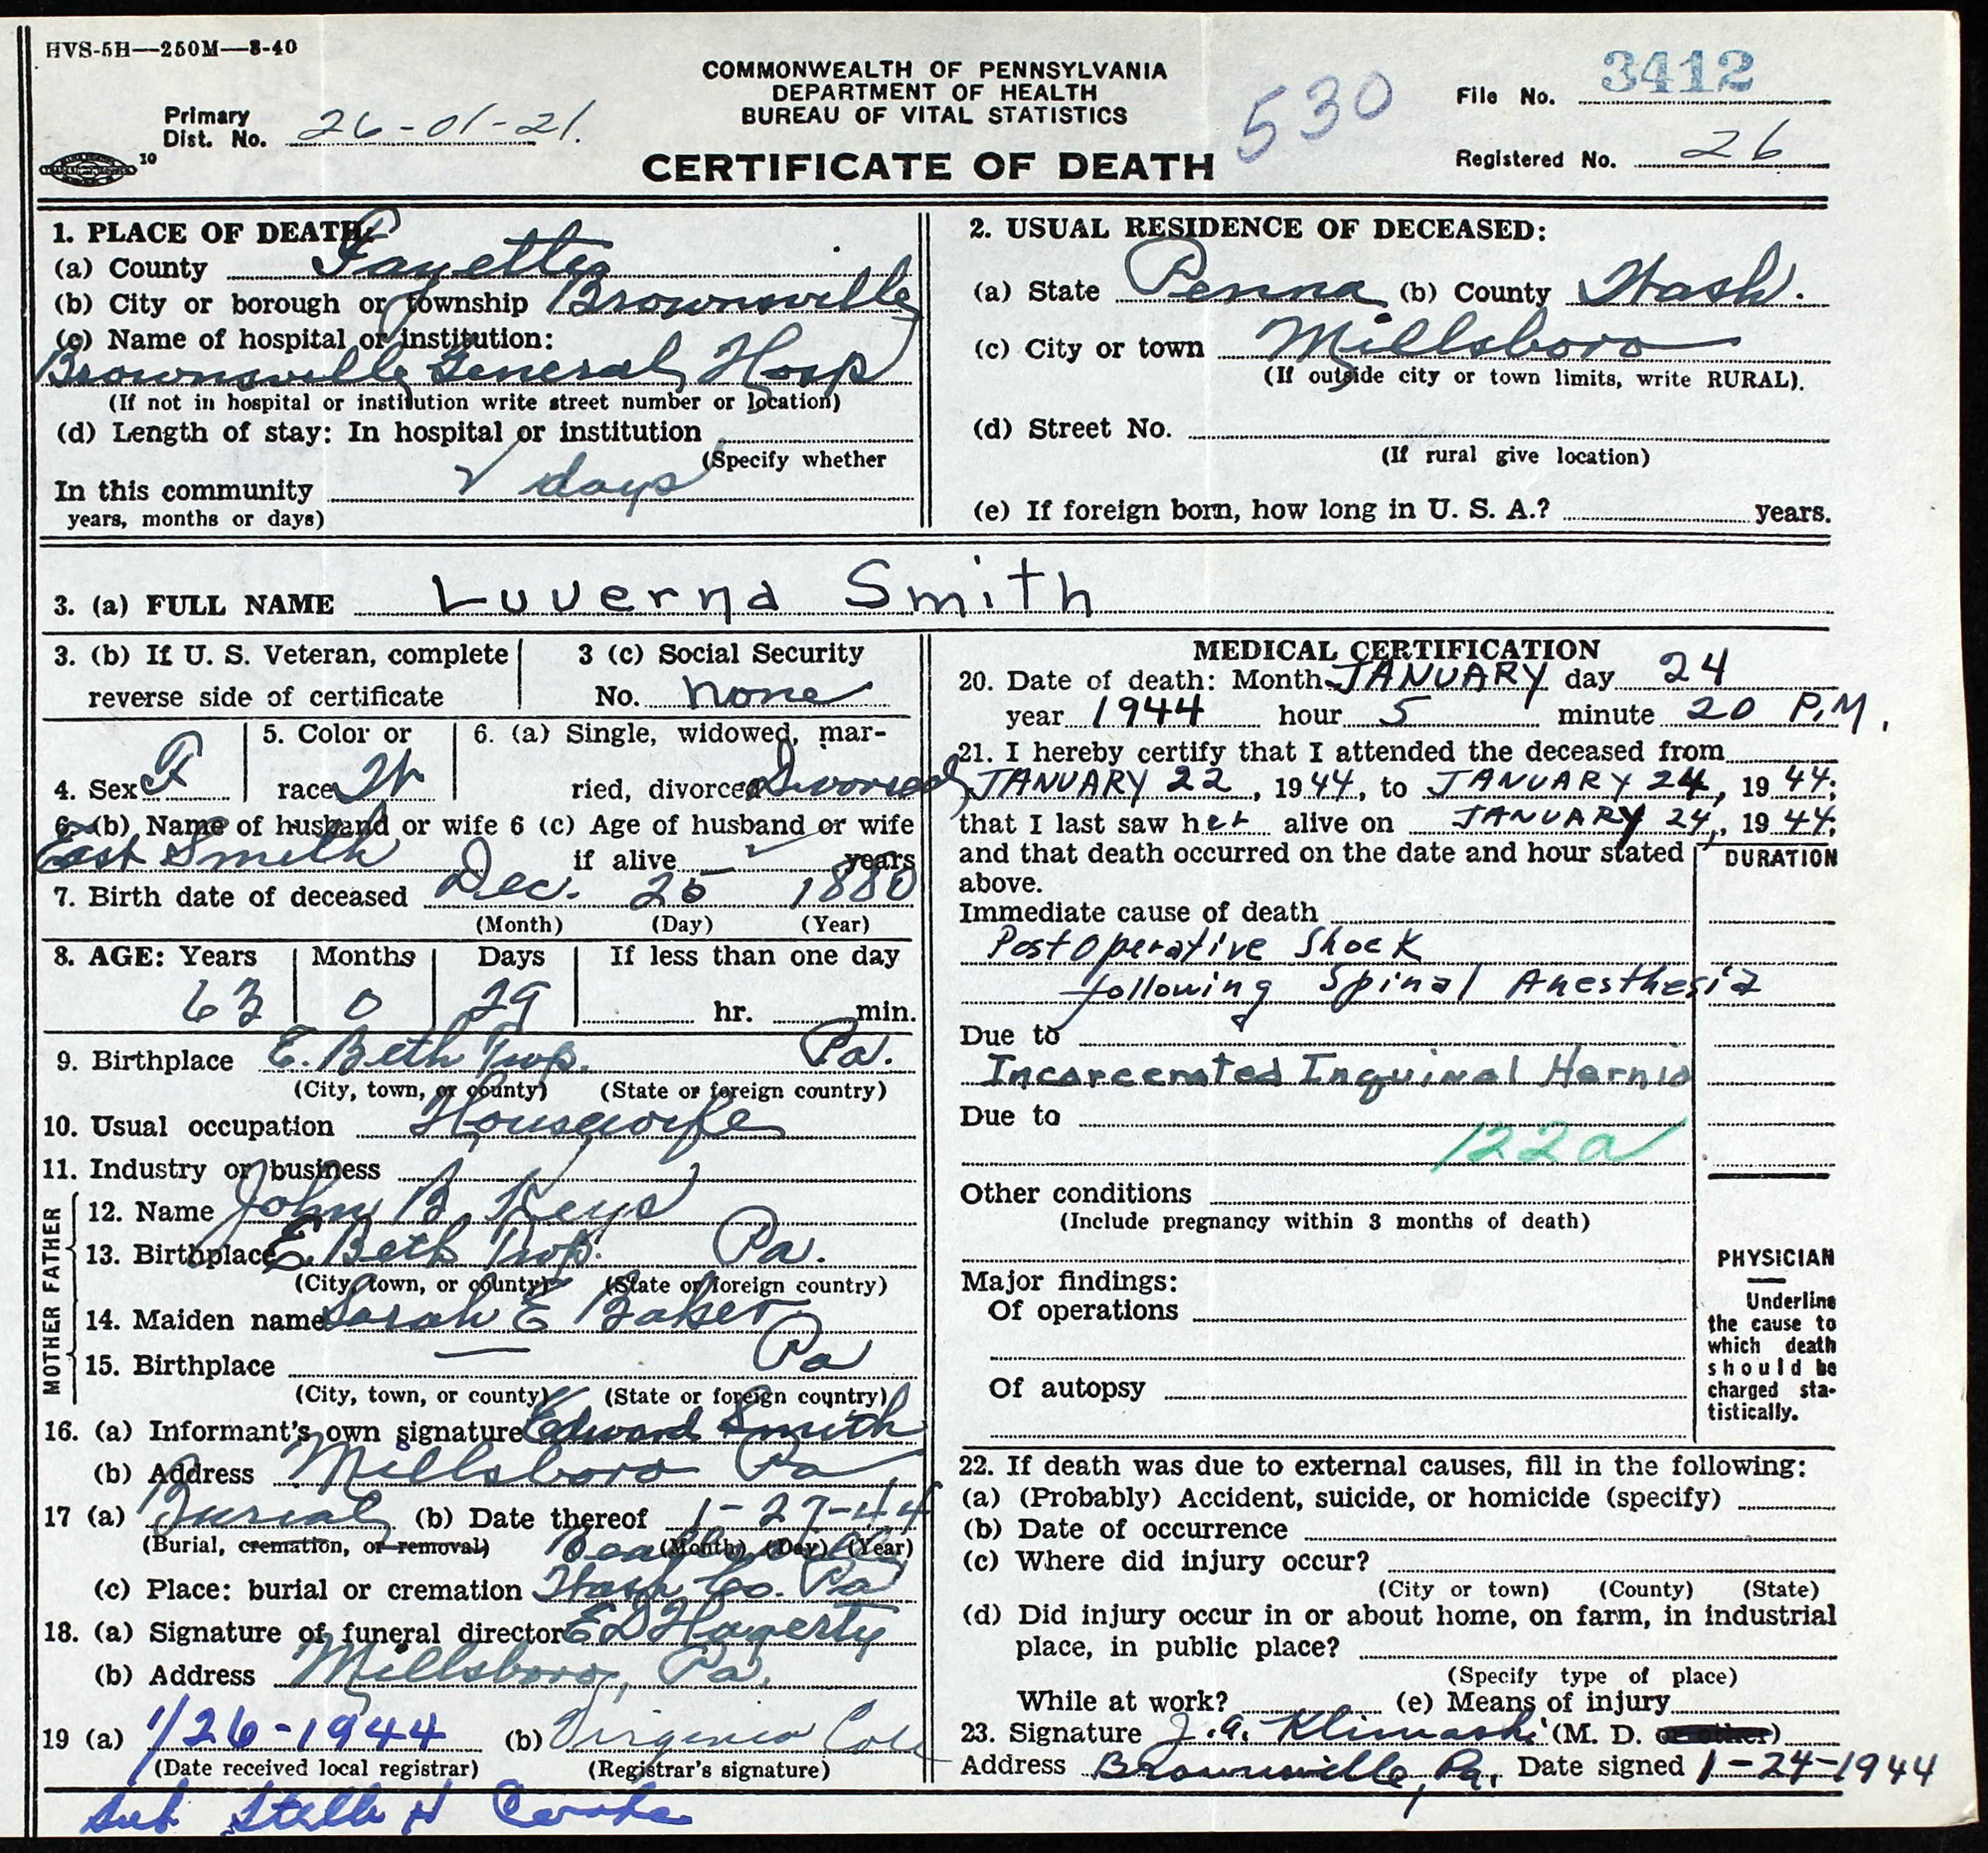 HVS-5H—250M—8-40
COMMONWEALTH OF PENNSYLVANIA
DEPARTMENT OF HEALTH
BUREAU OF VITAL STATISTICS
CERTIFICATE OF DEATH
530
Primary
Dist. No. 26-01-21.
10
File No. 3412
Registered No. 26
1. PLACE OF DEATH:
(a) County Fayette
(b) City or borough or township Brownsville
(c) Name of hospital or institution:
Brownsville General Hosp
(If not in hospital or institution write street number or location)
(d) Length of stay: In hospital or institution
(Specify whether
In this community 2 days
years, months or days)
2. USUAL RESIDENCE OF DECEASED:
(a) State Penna (b) County Wash.
(c) City or town Millsboro
(If outside city or town limits, write RURAL).
(d) Street No.
(If rural give location)
(e) If foreign born, how long in U. S. A.? years.
3. (a) FULL NAME Luverna Smith
3. (b) If U. S. Veteran, complete
reverse side of certificate
3 (c) Social Security
No. none
4. Sex F
5. Color or
race W
6. (a) Single, widowed, mar-
ried, divorced Divorced
6. (b) Name of husband or wife
East Smith
6 (c) Age of husband or wife
if alive years
7. Birth date of deceased Dec. 25 1880
(Month) (Day) (Year)
8. AGE: Years Months Days If less than one day
63 0 29 hr. min.
9. Birthplace E. Beth Twp. Pa.
(City, town, or county) (State or foreign country)
10. Usual occupation Housewife
11. Industry or business
FATHER
12. Name John B Keys
13. Birthplace E. Beth Twp. Pa.
(City, town, or county) (State or foreign country)
MOTHER
14. Maiden name Sarah E Baker
15. Birthplace — Pa
(City, town, or county) (State or foreign country)
16. (a) Informant's own signature Edward Smith
(b) Address Millsboro Pa
17 (a) Burial (b) Date thereof 1-27-44
(Burial, cremation, or removal) (Month) (Day) (Year)
(c) Place: burial or cremation Wash Co. Pa
18. (a) Signature of funeral director E D Hagerty
(b) Address Millsboro, Pa.
19 (a) 1/26-1944 (b) Virginia Cole
(Date received local registrar) (Registrar's signature)
sub Stella H
MEDICAL CERTIFICATION
20. Date of death: Month JANUARY day 24
year 1944 hour 5 minute 20 P.M.
21. I hereby certify that I attended the deceased from
JANUARY 22, 1944, to JANUARY 24, 1944;
that I last saw her alive on JANUARY 24, 1944;
and that death occurred on the date and hour stated
above.
DURATION
Immediate cause of death
Post Operative Shock
following Spinal Anesthesia
Due to
Incarcerated Inguinal Hernia
Due to
122a
Other conditions
(Include pregnancy within 3 months of death)
Major findings:
Of operations
Of autopsy
PHYSICIAN
Underline
the cause to
which death
should be
charged sta-
tistically.
22. If death was due to external causes, fill in the following:
(a) (Probably) Accident, suicide, or homicide (specify)
(b) Date of occurrence
(c) Where did injury occur?
(City or town) (County) (State)
(d) Did injury occur in or about home, on farm, in industrial
place, in public place?
(Specify type of place)
While at work? (e) Means of injury
23. Signature J. A. Klimaski (M. D. or other)
Address Brownsville, Pa. Date signed 1-24-1944